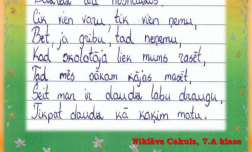 Cik vien varu, tik vien ņemu,
Bet, ja gribu, tad neņemu,
Kad skolotāja liek mums rasēt,
Tad mēs sākam kājas masēt,
Šeit man ir daudz labu draugu,
Tikpat daudz kā kaķim matu.
Niklāvs Cakuls, 7.A klase